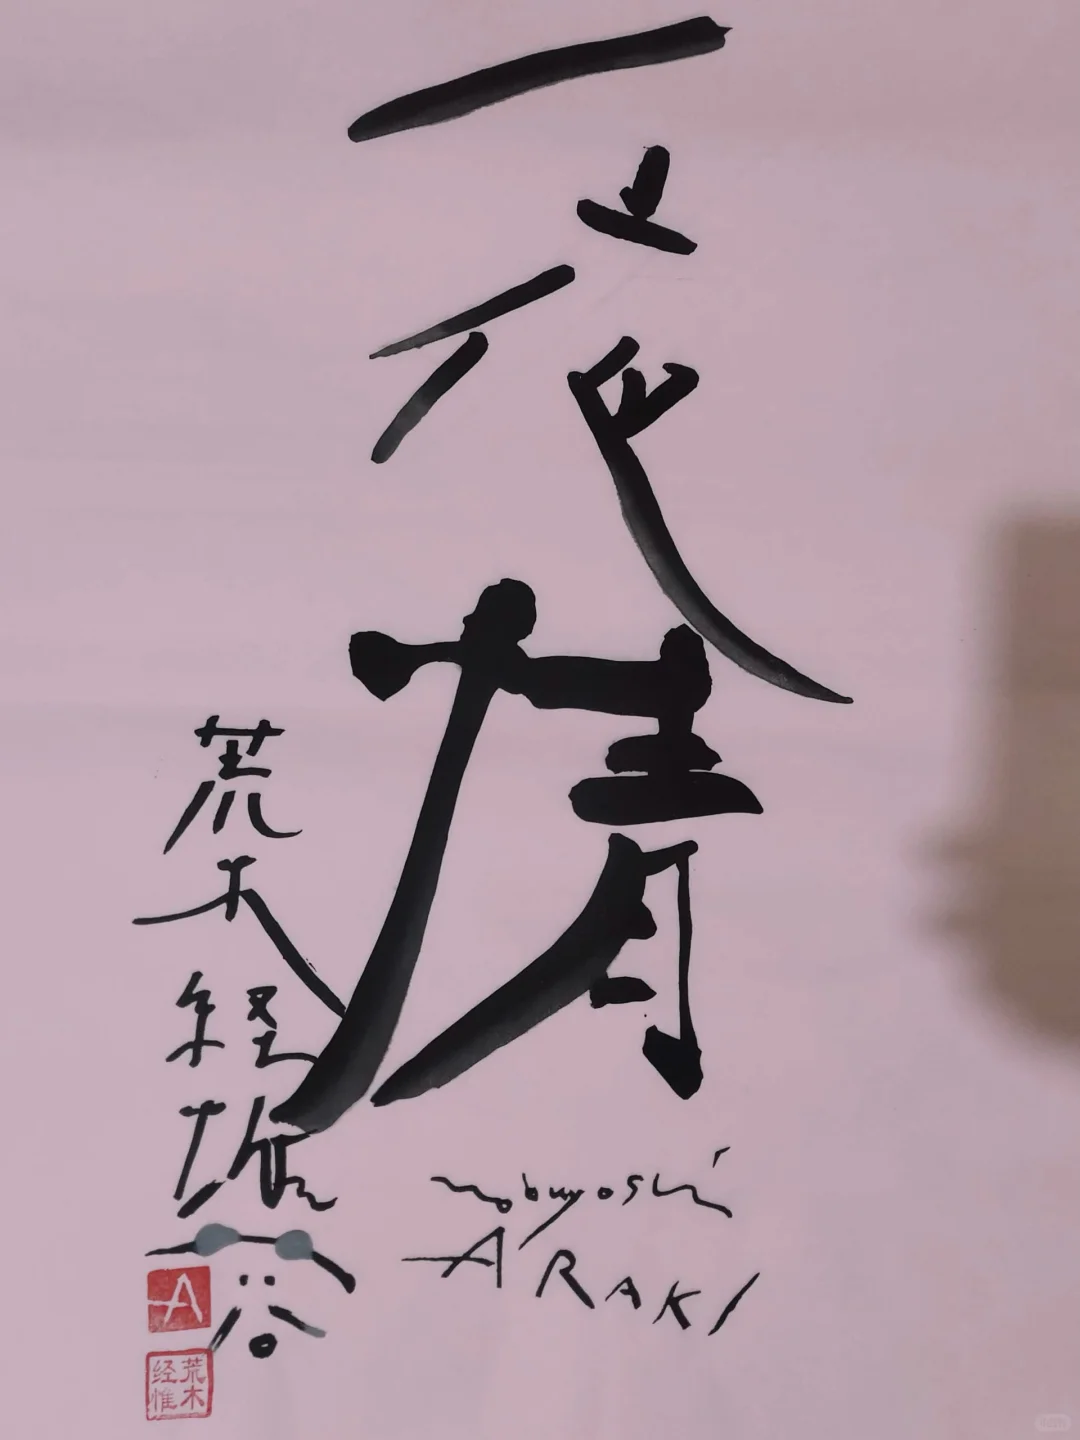 一夜情
荒木経惟
nobuyoshi
ARAKI
A
荒木
经惟